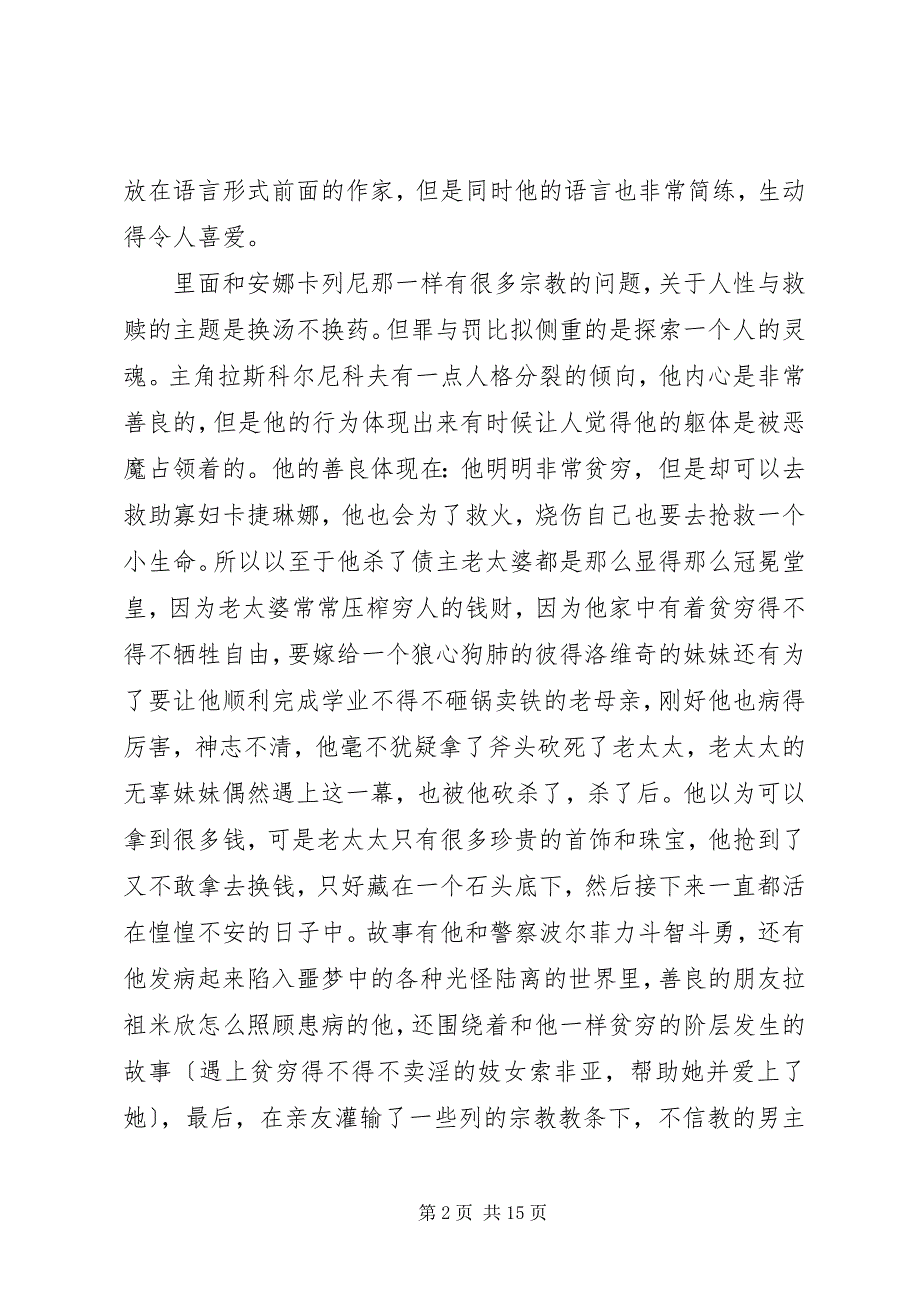 放在语言形式前面的作家，但是同时他的语言也非常简练，生动
得令人喜爱。
里面和安娜卡列尼那一样有很多宗教的问题，关于人性与救
赎的主题是换汤不换药。但罪与罚比拟侧重的是探索一个人的灵
魂。主角拉斯科尔尼科夫有一点人格分裂的倾向，他内心是非常
善良的，但是他的行为体现出来有时候让人觉得他的躯体是被恶
魔占领着的。他的善良体现在：他明明非常贫穷，但是却可以去
救助寡妇卡捷琳娜，他也会为了救火，烧伤自己也要去抢救一个
小生命。所以以至于他杀了债主老太婆都是那么显得那么冠冕堂
皇，因为老太婆常常压榨穷人的钱财，因为他家中有着贫穷得不
得不牺牲自由，要嫁给一个狼心狗肺的彼得洛维奇的妹妹还有为
了要让他顺利完成学业不得不砸锅卖铁的老母亲，刚好他也病得
厉害，神志不清，他毫不犹疑拿了斧头砍死了老太太，老太太的
无辜妹妹偶然遇上这一幕，也被他砍杀了，杀了后。他以为可以
拿到很多钱，可是老太太只有很多珍贵的首饰和珠宝，他抢到了
又不敢拿去换钱，只好藏在一个石头底下，然后接下来一直都活
在惶惶不安的日子中。故事有他和警察波尔菲力斗智斗勇，还有
他发病起来陷入噩梦中的各种光怪陆离的世界里，善良的朋友拉
祖米欣怎么照顾患病的他，还围绕着和他一样贫穷的阶层发生的
故事〔遇上贫穷得不得不卖淫的妓女索非亚，帮助她并爱上了
她〕，最后，在亲友灌输了一些列的宗教教条下，不信教的男主
第 2 页 共 15 页